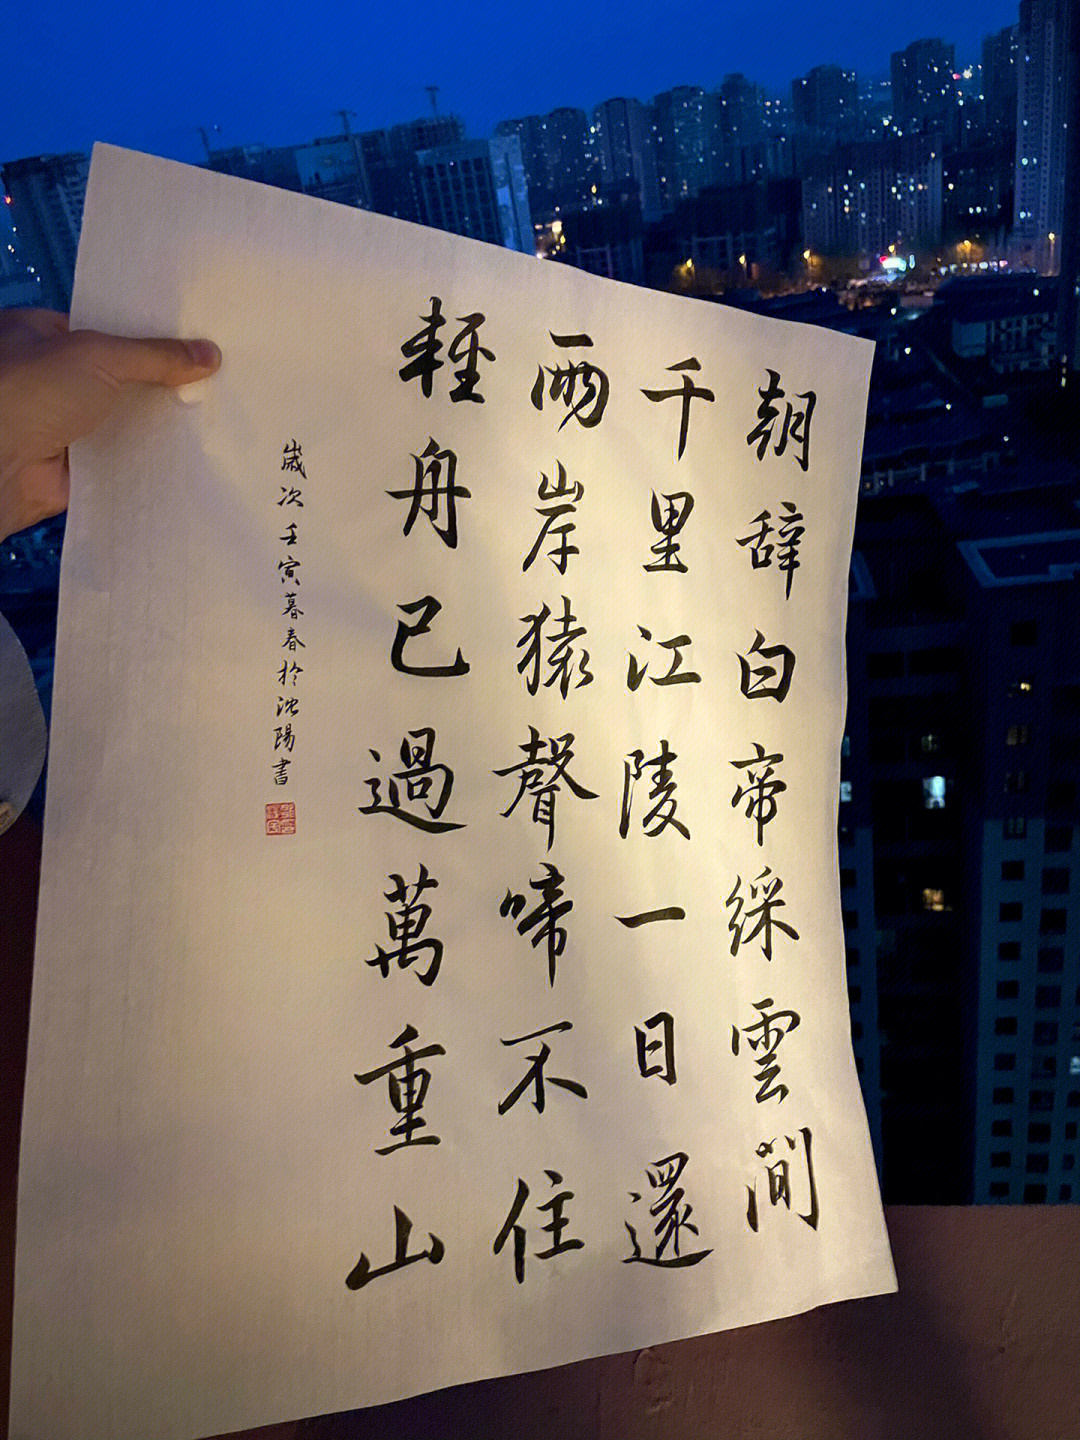 朝辞白帝綵雲間
千里江陵一日還
兩岸猿聲啼不住
輕舟已過萬重山
歲次壬寅暮春於沈陽書